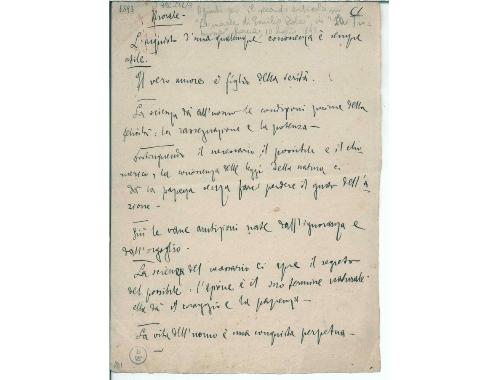 1893
Morale -
L'acquisto d'una qualunque conoscenza è sempre
utile.
Il vero amore è figlio della verità.
La scienza dà all'uomo le condizioni prime della
felicità: la rassegnazione e la potenza -
Distinguendo il necessario, il possibile e il chi
merico, la conoscenza delle leggi della natura ci
dà la pazienza senza farci perdere il gusto dell'a
zione -
Giù le vane ambizioni nate dall'ignoranza e
dall'orgoglio -
La scienza del necessario ci apre il segreto
del possibile: l'azione è il suo termine naturale
ella dà il coraggio e la pazienza -
La vita dell'uomo è una conquista perpetua -